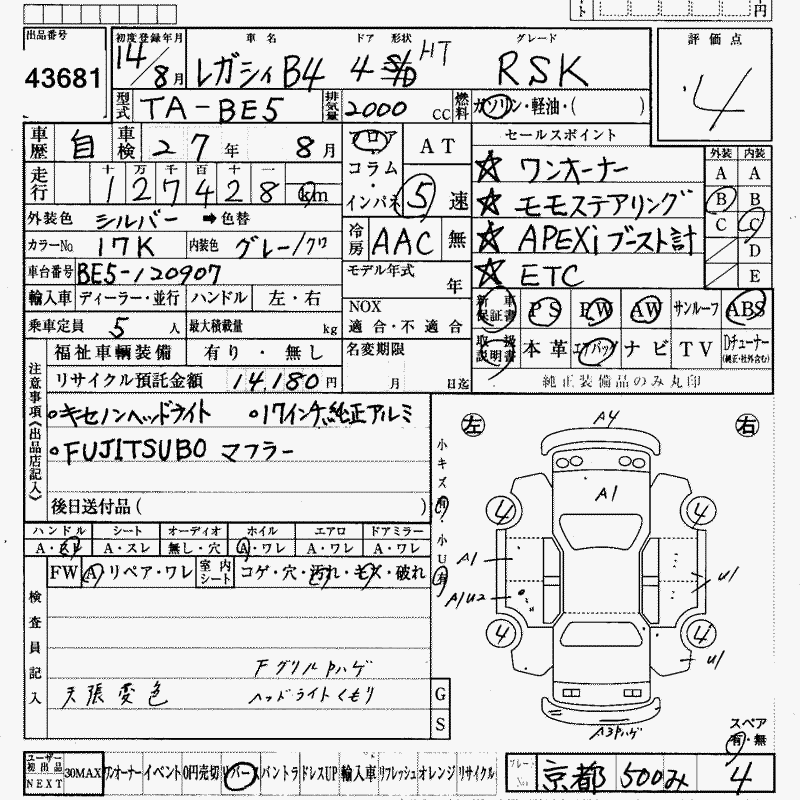 ト 円
出品番号 初度登録年月 車名 ドア 形状 グレード 評価点
43681 14/8月 レガシィB4 4 S/D HT RSK 4
型式 TA-BE5 排気量 2000 CC 燃料 ガソリン・軽油・( )
車歴 自 車検 27年 8月 フロア・コラム・インパネ AT 5速 セールスポイント 外装 内装
走行 十万千百十一 127428 km
☆ ワンオーナー A A
☆ モモステアリング B B
☆ APEXi ブースト計 C C
☆ ETC D
E
外装色 シルバー ➡色替 冷房 AAC 無
カラーNo. 17K 内装色 グレー/クロ
車台番号 BE5-120907 モデル年式 年
輸入車 ディーラー・並行 ハンドル 左・右 NOX 適合・不適合
乗車定員 5人 最大積載量 kg
新車保証書 PS PW AW サンルーフ ABS
取扱説明書 本革 エアバッグ ナビ TV Dチューナー (純正・社外含む)
純正装備品のみ丸印
福祉車輌装備 有り・無し 名変期限
リサイクル預託金額 14,180円 月 日迄
注意事項《出品店記入》
○キセノンヘッドライト ○17インチ純正アルミ
○FUJITSUBO マフラー
後日送付品( )
小キズ 有・小U 有
左 右
A4
A1
4 4
A1 U1
A1U2
4 4
U1
A3Pハゲ
ハンドル シート オーディオ ホイル エアロ ドアミラー
A・スレ A・スレ 無し・穴 A・ワレ A・ワレ A・ワレ
FW A・リペア・ワレ 室内シート コゲ・穴・汚れ・モケ・破れ
検査員記入
Fグリル Pハゲ
天張変色 ヘッドライトくもり
G
S
スペア
有・無
ユーザー初出品 NEXT 30MAX ワンオーナー イベント 0円売切 リバース バントラ ドレスUP 輸入車 リフレッシュ オレンジ リサイクル
プレートNo. 京都 500 み 4